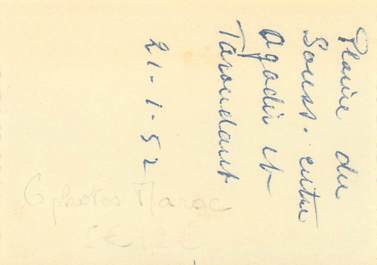 Plaine du
Souss. entre
Agadir et
Taroudant
21-1-52
6 photos Maroc